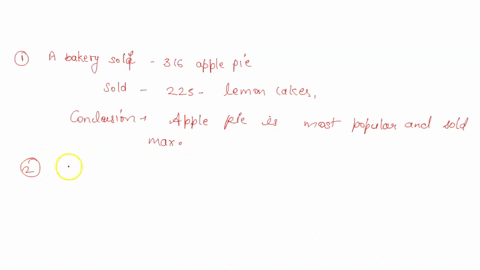 ① A bakery sold - 316 apple pie
Sold - 225 - lemon cakes,
Conclusion → Apple pie is most popular and sold
max.
②